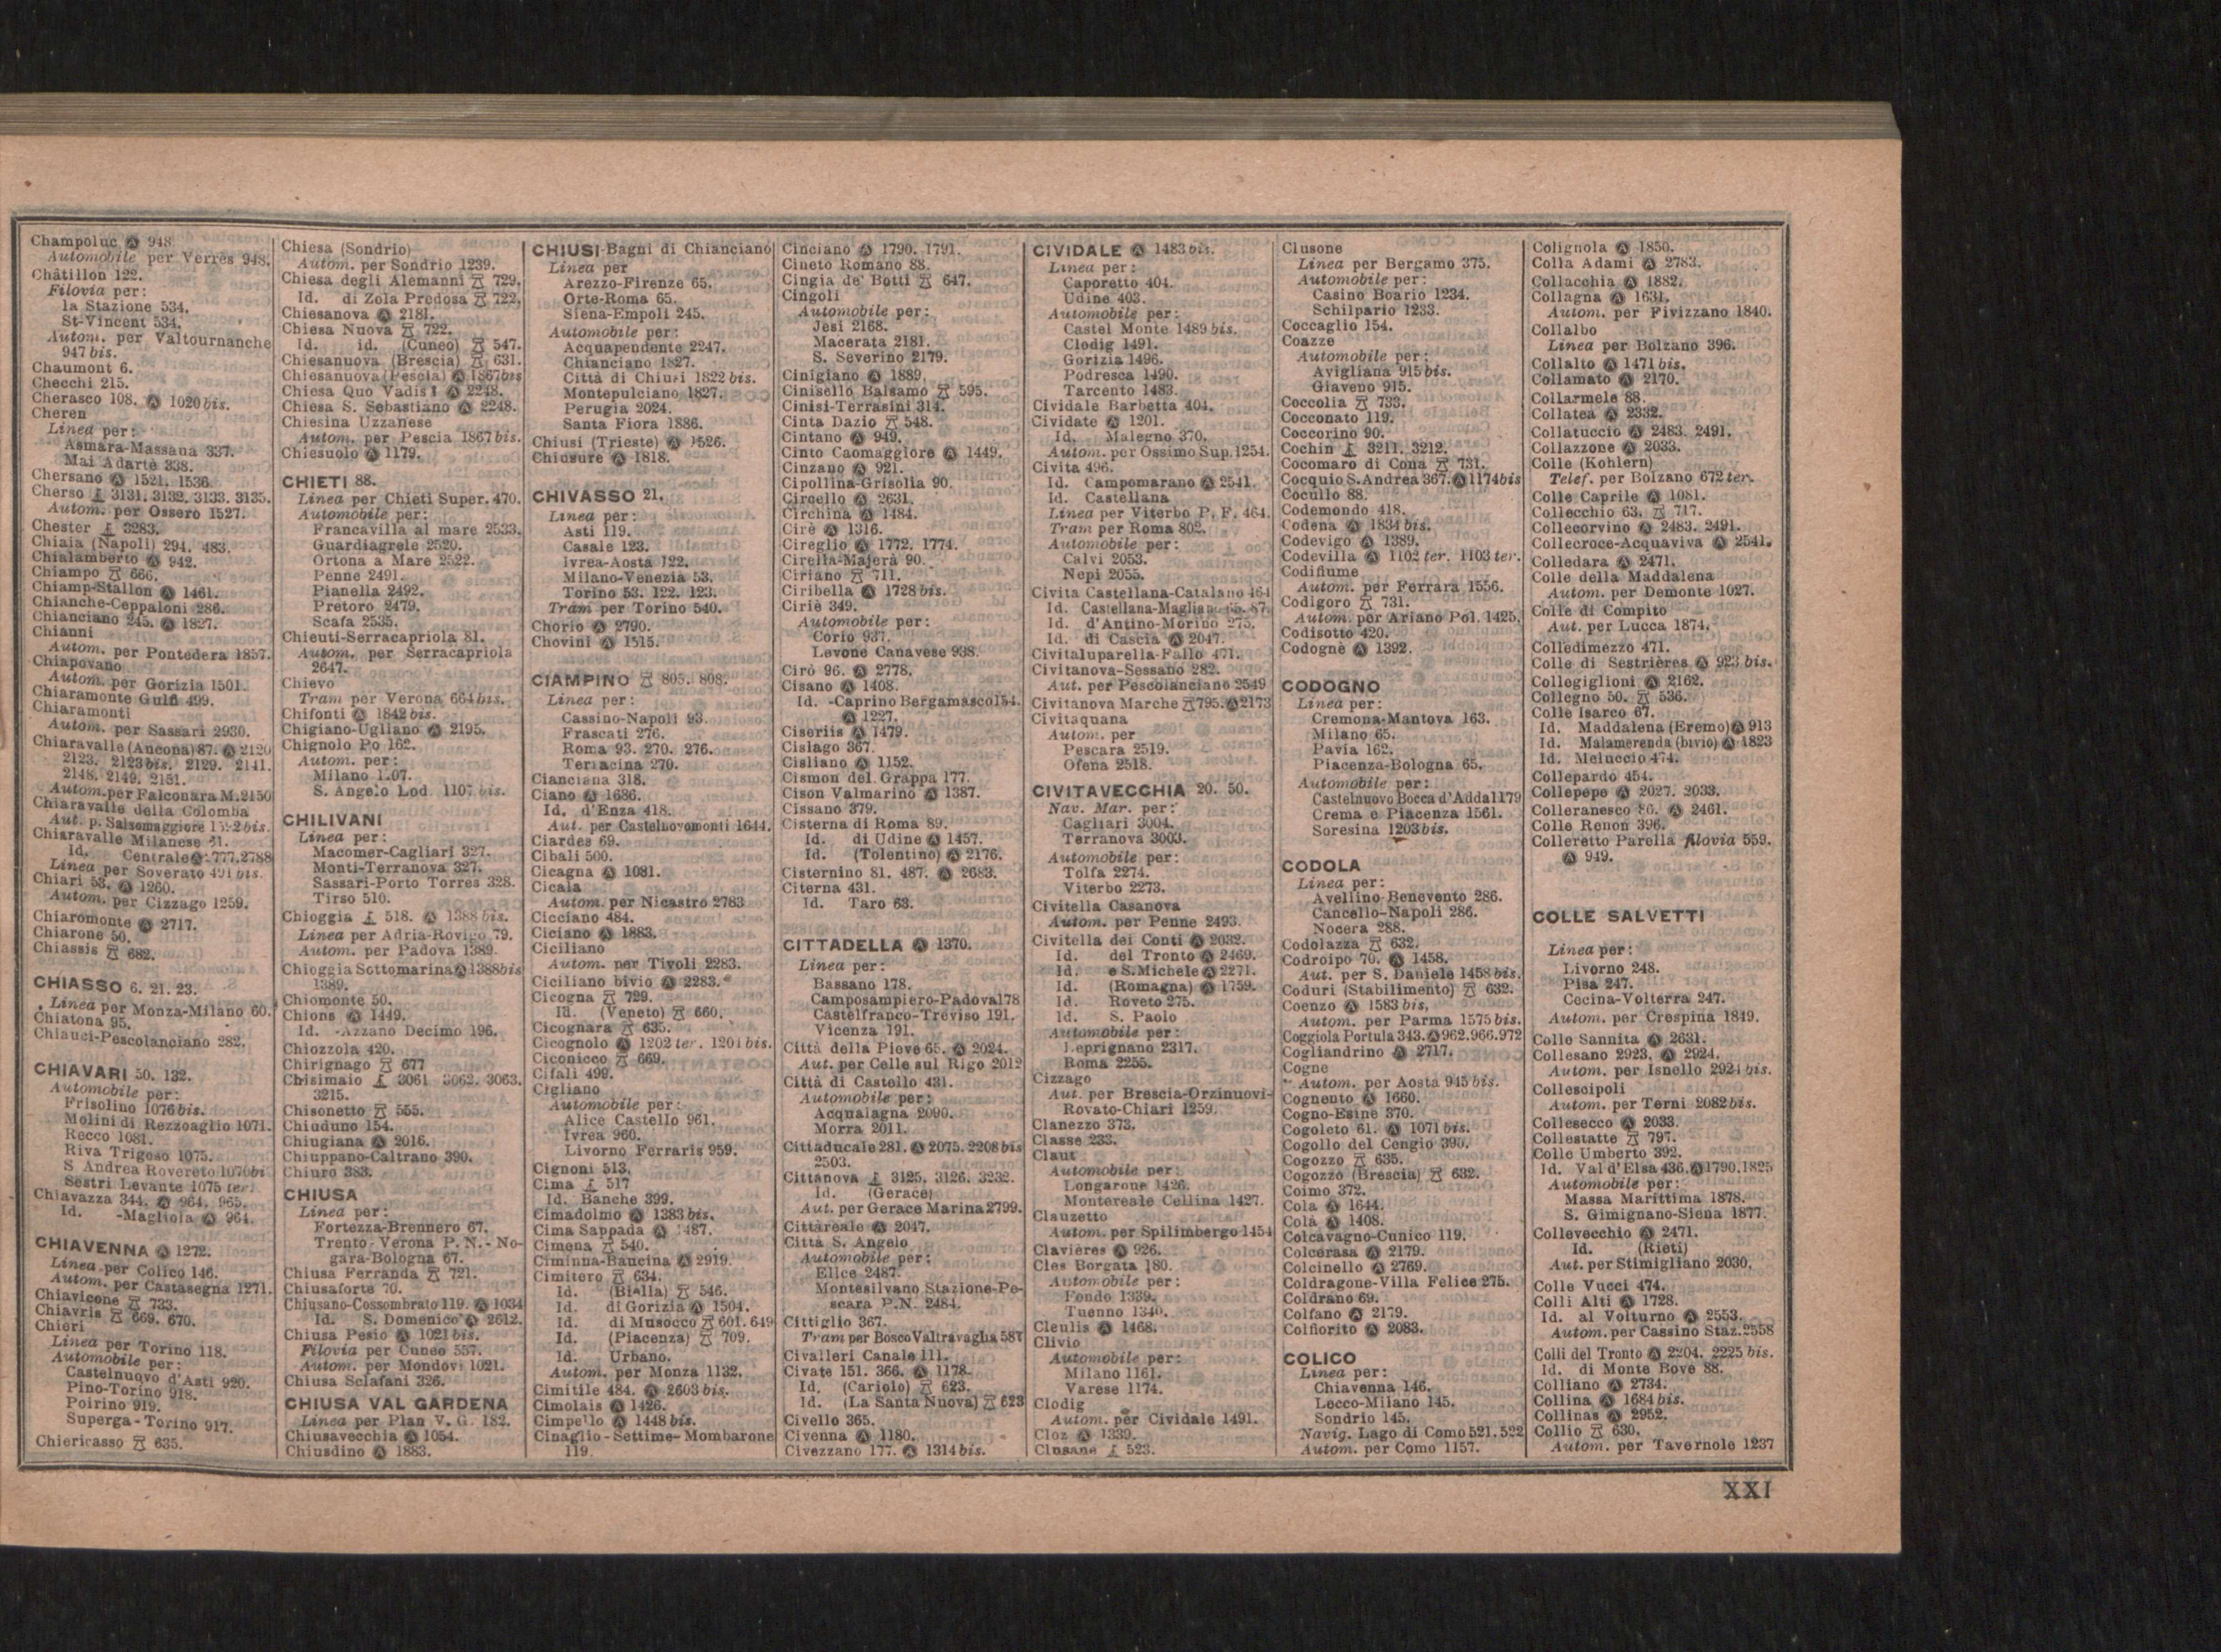 Champoluc Ⓐ 948
Automobile per Verrès 948.
Châtillon 122.
Filovia per:
la Stazione 534.
St-Vincent 534.
Autom. per Valtournanche
947 bis.
Chaumont 6.
Checchi 215.
Cherasco 108. Ⓐ 1020 bis.
Cheren
Linea per:
Asmara-Massaua 337.
Mai Adarte 338.
Chersano Ⓐ 1521. 1536.
Cherso ⚓ 3131. 3132. 3133. 3135.
Autom. per Ossero 1527.
Chester ⚓ 3283.
Chiaia (Napoli) 294. 483.
Chialamberto Ⓐ 942.
Chiampo 666.
Chiamp-Stallon Ⓐ 1461.
Chianche-Ceppaloni 286.
Chianciano 245. Ⓐ 1827.
Chianni
Autom. per Pontedera 1857.
Chiapovano
Autom. per Gorizia 1501.
Chiaramonte Gulfi 499.
Chiaramonti
Autom. per Sassari 2930.
Chiaravalle (Ancona) 87. Ⓐ 2120
2123. 2123 bis. 2129. 2141.
2148. 2149. 2151.
Autom. per Falconara M. 2150
Chiaravalle della Colomba
Aut. p. Salsomaggiore bis.
Chiaravalle Milanese
Id. Centrale Ⓐ 777. 2788
Linea per Soverato 491 bis.
Chiari 53. Ⓐ 1260.
Autom. per Cizzago 1259.
Chiaromonte Ⓐ 2717.
Chiarone 50.
Chiassis 682.
CHIASSO 6. 21. 23.
Linea per Monza-Milano 60.
Chiatona 95.
Chiauci-Pescolanciano 282.
CHIAVARI 50. 132.
Automobile per:
Frisolino 1076 bis.
Molini di Rezzoaglio 1071.
Recco 1081.
Riva Trigoso 1075.
S Andrea Rovereto 1076 bi
Sestri Levante 1075 ter.
Chiavazza 344. Ⓐ 964. 965.
Id. -Magliola Ⓐ 964.
CHIAVENNA Ⓐ 1272.
Linea per Colico 146.
Autom. per Castasegna 1271.
Chiavicone 733.
Chiavris 669. 670.
Chieri
Linea per Torino 118.
Automobile per:
Castelnuovo d'Asti 920.
Pino-Torino 918.
Poirino 919.
Superga-Torino 917.
Chiericasso 635.
Chiesa (Sondrio)
Autom. per Sondrio 1239.
Chiesa degli Alemanni 729.
Id. di Zola Predosa 722.
Chiesanova Ⓐ 2181.
Chiesa Nuova 722.
Id. id. (Cuneo) 547.
Chiesanuova (Brescia) 631.
Chiesanuova (Pescia) Ⓐ 1867 bis
Chiesa Quo Vadis? Ⓐ 2248.
Chiesa S. Sebastiano Ⓐ 2248.
Chiesina Uzzanese
Autom. per Pescia 1867 bis.
Chiesuolo Ⓐ 1179.
CHIETI 88.
Linea per Chieti Super. 470.
Automobile per:
Francavilla al mare 2533.
Guardiagrele 2520.
Ortona a Mare 2522.
Penne 2491.
Pianella 2492.
Pretoro 2479.
Scafa 2535.
Chieuti-Serracapriola 81.
Autom. per Serracapriola
2647.
Chievo
Tram per Verona 664 bis.
Chifonti Ⓐ 1842 bis.
Chigiano-Ugliano Ⓐ 2195.
Chignolo Po 162.
Autom. per:
Milano 1107.
S. Angelo Lod. 1107 bis.
CHILIVANI
Linea per:
Macomer-Cagliari 327.
Monti-Terranova 327.
Sassari-Porto Torres 328.
Tirso 510.
Chioggia ⚓ 518. Ⓐ 1388 bis.
Linea per Adria-Rovigo 79.
Autom. per Padova 1389.
Chioggia Sottomarina Ⓐ 1388 bis
1389.
Chiomonte 50.
Chions Ⓐ 1449.
Id. -Azzano Decimo 196.
Chiozzola 420.
Chirignago 677
Chisimaio ⚓ 3061 3062. 3063.
3215.
Chisonetto 555.
Chiuduno 154.
Chiugiana Ⓐ 2016.
Chiuppano-Caltrano 390.
Chiuro 383.
CHIUSA
Linea per:
Fortezza-Brennero 67.
Trento-Verona P. N.-No-
gara-Bologna 67.
Chiusa Ferranda 721.
Chiusaforte 70.
Chiusano-Cossombrato 119. Ⓐ 1034
Id. S. Domenico Ⓐ 2612.
Chiusa Pesio Ⓐ 1021 bis.
Filovia per Cuneo 557.
Autom. per Mondovì 1021.
Chiusa Sclafani 326.
CHIUSA VAL GARDENA
Linea per Plan V. G. 182.
Chiusavecchia Ⓐ 1054.
Chiusdino Ⓐ 1883.
CHIUSI-Bagni di Chianciano
Linea per
Arezzo-Firenze 65.
Orte-Roma 65.
Siena-Empoli 245.
Automobile per:
Acquapendente 2247.
Chianciano 1827.
Città di Chiusi 1822 bis.
Montepulciano 1827.
Perugia 2024.
Santa Fiora 1886.
Chiusi (Trieste) Ⓐ 1526.
Chiusure Ⓐ 1818.
CHIVASSO 21.
Linea per:
Asti 119.
Casale 123.
Ivrea-Aosta 122.
Milano-Venezia 53.
Torino 53. 122. 123.
Tram per Torino 540.
Chorio Ⓐ 2790.
Chovini Ⓐ 1515.
CIAMPINO 805. 808.
Linea per:
Cassino-Napoli 93.
Frascati 276.
Roma 93. 270. 276.
Terracina 270.
Cianciana 318.
Ciano Ⓐ 1686.
Id. d'Enza 418.
Aut. per Castelnovomonti 1644.
Ciardes 69.
Cibali 500.
Cicagna Ⓐ 1081.
Cicala
Autom. per Nicastro 2783
Cicciano 484.
Ciciano Ⓐ 1883.
Ciciliano
Autom. per Tivoli 2283.
Ciciliano bivio Ⓐ 2283.
Cicogna 729.
Id. (Veneto) 660.
Cicognara 635.
Cicognolo Ⓐ 1202 ter. 1201 bis.
Ciconicco 669.
Cifali 499.
Cigliano
Automobile per:
Alice Castello 961.
Ivrea 960.
Livorno Ferraris 959.
Cignoni 513.
Cima ⚓ 517
Id. Banche 399.
Cimadolmo Ⓐ 1383 bis.
Cima Sappada Ⓐ 1487.
Cimena 540.
Ciminna-Baucina Ⓐ 2919.
Cimitero 634.
Id. (Biella) 546.
Id. di Gorizia Ⓐ 1504.
Id. di Musocco 601. 649
Id. (Piacenza) 709.
Id. Urbano.
Autom. per Monza 1132.
Cimitile 484. Ⓐ 2603 bis.
Cimolais Ⓐ 1426.
Cimpello Ⓐ 1448 bis.
Cinaglio-Settime-Mombarone
119.
Cinciano Ⓐ 1790. 1791.
Cineto Romano 88.
Cingia de' Botti 647.
Cingoli
Automobile per:
Jesi 2168.
Macerata 2181.
S. Severino 2179.
Cinigiano Ⓐ 1889.
Cinisello Balsamo 595.
Cinisi-Terrasini 314.
Cinta Dazio 548.
Cintano Ⓐ 949.
Cinto Caomaggiore Ⓐ 1449.
Cinzano Ⓐ 921.
Cipollina-Grisolia 90.
Circello Ⓐ 2631.
Circhina Ⓐ 1484.
Cirè Ⓐ 1316.
Cireglio Ⓐ 1772. 1774.
Cirella-Majerà 90.
Ciriano 711.
Ciribella Ⓐ 1728 bis.
Ciriè 349.
Automobile per:
Corio 937.
Levone Canavese 938.
Cirò 96. Ⓐ 2778.
Cisano Ⓐ 1408.
Id. -Caprino Bergamasco 154.
Ⓐ 1227.
Ciseriis Ⓐ 1479.
Cislago 367.
Cisliano Ⓐ 1152.
Cismon del Grappa 177.
Cison Valmarino Ⓐ 1387.
Cissano 379.
Cisterna di Roma 89.
Id. di Udine Ⓐ 1457.
Id. (Tolentino) Ⓐ 2176.
Cisternino 81. 487. Ⓐ 2683.
Citerna 431.
Id. Taro 63.
CITTADELLA Ⓐ 1370.
Linea per:
Bassano 178.
Camposampiero-Padova 178
Castelfranco-Treviso 191.
Vicenza 191.
Città della Pieve 65. Ⓐ 2024.
Aut. per Celle sul Rigo 2012
Città di Castello 431.
Automobile per:
Acqualagna 2090.
Morra 2011.
Cittaducale 281. Ⓐ 2075. 2208 bis
2503.
Cittanova ⚓ 3125. 3126. 3232.
Id. (Gerace)
Aut. per Gerace Marina 2799.
Cittàreale Ⓐ 2047.
Città S. Angelo
Automobile per:
Elice 2487.
Montesilvano Stazione-Pe-
scara P.N. 2484.
Cittiglio 367.
Tram per Bosco Valtravaglia 587
Civalleri Canale 111.
Civate 151. 366. Ⓐ 1178.
Id. (Cariolo) 623.
Id. (La Santa Nuova) 623
Civello 365.
Civenna Ⓐ 1180.
Civezzano 177. Ⓐ 1314 bis.
CIVIDALE Ⓐ 1483 bis.
Linea per:
Caporetto 404.
Udine 403.
Automobile per:
Castel Monte 1489 bis.
Clodig 1491.
Gorizia 1496.
Podresca 1490.
Tarcento 1483.
Cividale Barbetta 404.
Cividate Ⓐ 1201.
Id. Malegno 370.
Autom. per Ossimo Sup. 1254.
Civita 496.
Id. Campomarano Ⓐ 2541.
Id. Castellana
Linea per Viterbo P. F. 464.
Tram per Roma 802.
Automobile per:
Calvi 2053.
Nepi 2055.
Civita Castellana-Catalano 464
Id. Castellana-Magliano 65. 87.
Id. d'Antino-Morino 275.
Id. di Cascia Ⓐ 2047.
Civitaluparella-Fallo 471.
Civitanova-Sessano 282.
Aut. per Pescolanciano 2549
Civitanova Marche 795. Ⓐ 2173
Civitaquana
Autom. per
Pescara 2519.
Ofena 2518.
CIVITAVECCHIA 20. 50.
Nav. Mar. per:
Cagliari 3004.
Terranova 3003.
Automobile per:
Tolfa 2274.
Viterbo 2273.
Civitella Casanova
Autom. per Penne 2493.
Civitella dei Conti Ⓐ 2032.
Id. del Tronto Ⓐ 2469.
Id. e S. Michele Ⓐ 2271.
Id. (Romagna) Ⓐ 1759.
Id. Roveto 275.
Id. S. Paolo
Automobile per:
Leprignano 2317.
Roma 2255.
Cizzago
Aut. per Brescia-Orzinuovi-
Rovato-Chiari 1259.
Clanezzo 373.
Classe 233.
Claut
Automobile per:
Longarone 1426.
Montereale Cellina 1427.
Clauzetto
Autom. per Spilimbergo 1454
Clavières Ⓐ 926.
Cles Borgata 180.
Automobile per:
Fondo 1339.
Tuenno 1340.
Cleulis Ⓐ 1468.
Clivio
Automobile per:
Milano 1161.
Varese 1174.
Clodig
Autom. per Cividale 1491.
Cloz Ⓐ 1339.
Clusane ⚓ 523.
Clusone
Linea per Bergamo 375.
Automobile per:
Casino Boario 1234.
Schilpario 1233.
Coccaglio 154.
Coazze
Automobile per:
Avigliana 915 bis.
Giaveno 915.
Coccolia 733.
Cocconato 119.
Coccorino 90.
Cochin ⚓ 3211. 3212.
Cocomaro di Cona 731.
Cocquio S. Andrea 367. Ⓐ 1174 bis
Cocullo 88.
Codemondo 418.
Codena Ⓐ 1834 bis.
Codevigo Ⓐ 1389.
Codevilla Ⓐ 1102 ter. 1103 ter.
Codifiume
Autom. per Ferrara 1556.
Codigoro 731.
Autom. per Ariano Pol. 1425.
Codisotto 420.
Codognè Ⓐ 1392.
CODOGNO
Linea per:
Cremona-Mantova 163.
Milano 65.
Pavia 162.
Piacenza-Bologna 65.
Automobile per:
Castelnuovo Bocca d'Adda 1179
Crema e Piacenza 1561.
Soresina 1203 bis.
CODOLA
Linea per:
Avellino-Benevento 286.
Cancello-Napoli 286.
Nocera 288.
Codolazza 632.
Codroipo 70. Ⓐ 1458.
Aut. per S. Daniele 1458 bis.
Coduri (Stabilimento) 632.
Coenzo Ⓐ 1583 bis,
Autom. per Parma 1575 bis.
Coggiola Portula 343. Ⓐ 962. 966. 972
Cogliandrino Ⓐ 2717.
Cogne
Autom. per Aosta 945 bis.
Cognento Ⓐ 1660.
Cogno-Esine 370.
Cogoleto 61. Ⓐ 1071 bis.
Cogollo del Cengio 390.
Cogozzo 635.
Cogozzo (Brescia) 632.
Coimo 372.
Cola Ⓐ 1644.
Colà Ⓐ 1408.
Colcavagno-Cunico 119.
Colcerasa Ⓐ 2179.
Colcinello Ⓐ 2769.
Coldragone-Villa Felice 275.
Coldrano 69.
Colfano Ⓐ 2179.
Colfiorito Ⓐ 2083.
COLICO
Linea per:
Chiavenna 146.
Lecco-Milano 145.
Sondrio 145.
Navig. Lago di Como 521. 522
Autom. per Como 1157.
Colignola Ⓐ 1850.
Colla Adami Ⓐ 2783.
Collacchia Ⓐ 1882.
Collagna Ⓐ 1631.
Autom. per Fivizzano 1840.
Collalbo
Linea per Bolzano 396.
Collalto Ⓐ 1471 bis.
Collamato Ⓐ 2170.
Collarmele 88.
Collatea Ⓐ 2332.
Collatuccio Ⓐ 2483. 2491.
Collazzone Ⓐ 2033.
Colle (Kohlern)
Telef. per Bolzano 672 ter.
Colle Caprile Ⓐ 1081.
Collecchio 63. 717.
Collecorvino Ⓐ 2483. 2491.
Collecroce-Acquaviva Ⓐ 2541.
Colledara Ⓐ 2471.
Colle della Maddalena
Autom. per Demonte 1027.
Colle di Compito
Aut. per Lucca 1874.
Colledimezzo 471.
Colle di Sestrières Ⓐ 923 bis.
Collegiglioni Ⓐ 2162.
Collegno 50. 536.
Colle Isarco 67.
Id. Maddalena (Eremo) Ⓐ 913
Id. Malamerenda (bivio) Ⓐ 1823
Id. Meluccio 474.
Collepardo 454.
Collepepe Ⓐ 2027. 2033.
Colleranesco 86. Ⓐ 2461.
Colle Renon 396.
Colleretto Parella filovia 559.
Ⓐ 949.
COLLE SALVETTI
Linea per:
Livorno 248.
Pisa 247.
Cecina-Volterra 247.
Autom. per Crespina 1849.
Colle Sannita Ⓐ 2631.
Collesano 2923. Ⓐ 2924.
Autom. per Isnello 2924 bis.
Collescipoli
Autom. per Terni 2082 bis.
Collesecco Ⓐ 2033.
Collestatte 797.
Colle Umberto 392.
Id. Val d'Elsa 436. Ⓐ 1790. 1825
Automobile per:
Massa Marittima 1878.
S. Gimignano-Siena 1877.
Collevecchio Ⓐ 2471.
Id. (Rieti)
Aut. per Stimigliano 2030.
Colle Vucci 474.
Colli Alti Ⓐ 1728.
Id. al Volturno Ⓐ 2553.
Autom. per Cassino Staz. 2558
Colli del Tronto Ⓐ 2204. 2225 bis.
Id. di Monte Bove 88.
Colliano Ⓐ 2734.
Collina Ⓐ 1684 bis.
Collinas Ⓐ 2952.
Collio 630.
Autom. per Tavernole 1237
XXI